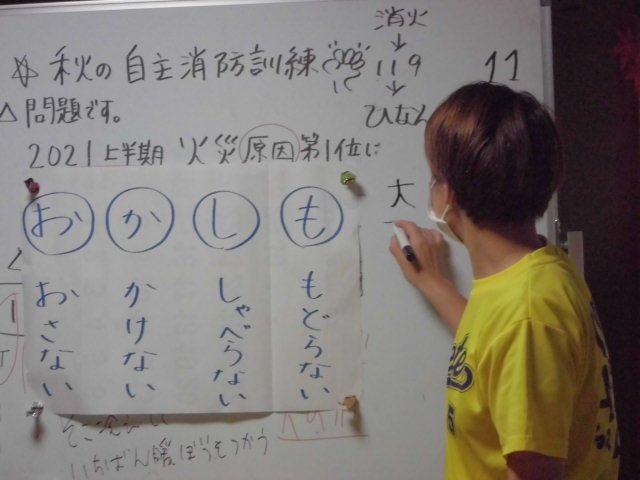 消火
↓
☆ 秋の自主消防訓練 119 11
↓
ひなん
△問題です。
2021上半期 火災原因第1位に
大
お か し も
おさない
かけない
しゃべらない
もどらない
いちばん暖ぼうをつかう